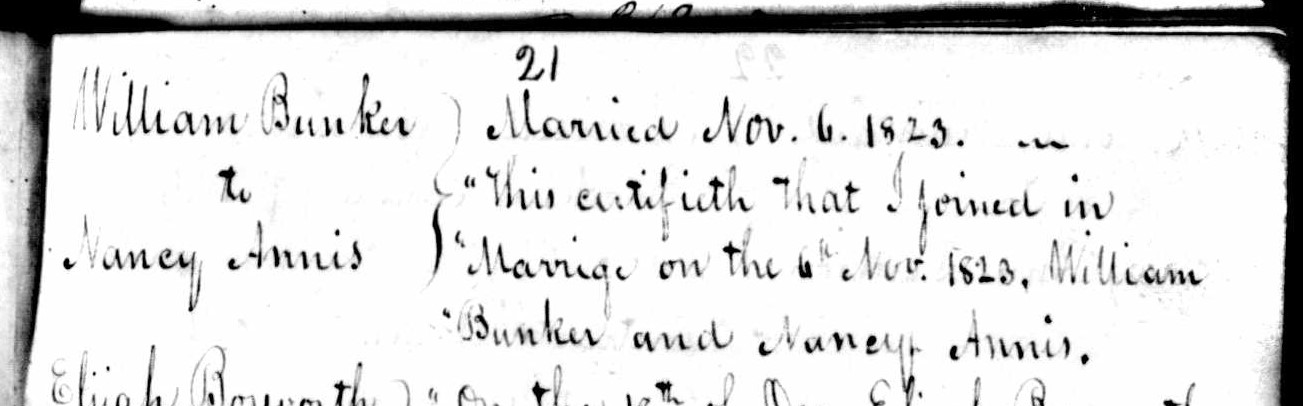 21
William Bunker } Married Nov. 6. 1823.
to } "This certifieth that I joined in
Nancy Annis } "Marrige on the 6th Nov. 1823, William
"Bunker and Nancy Annis.
Elijah Bosworth } "On the of